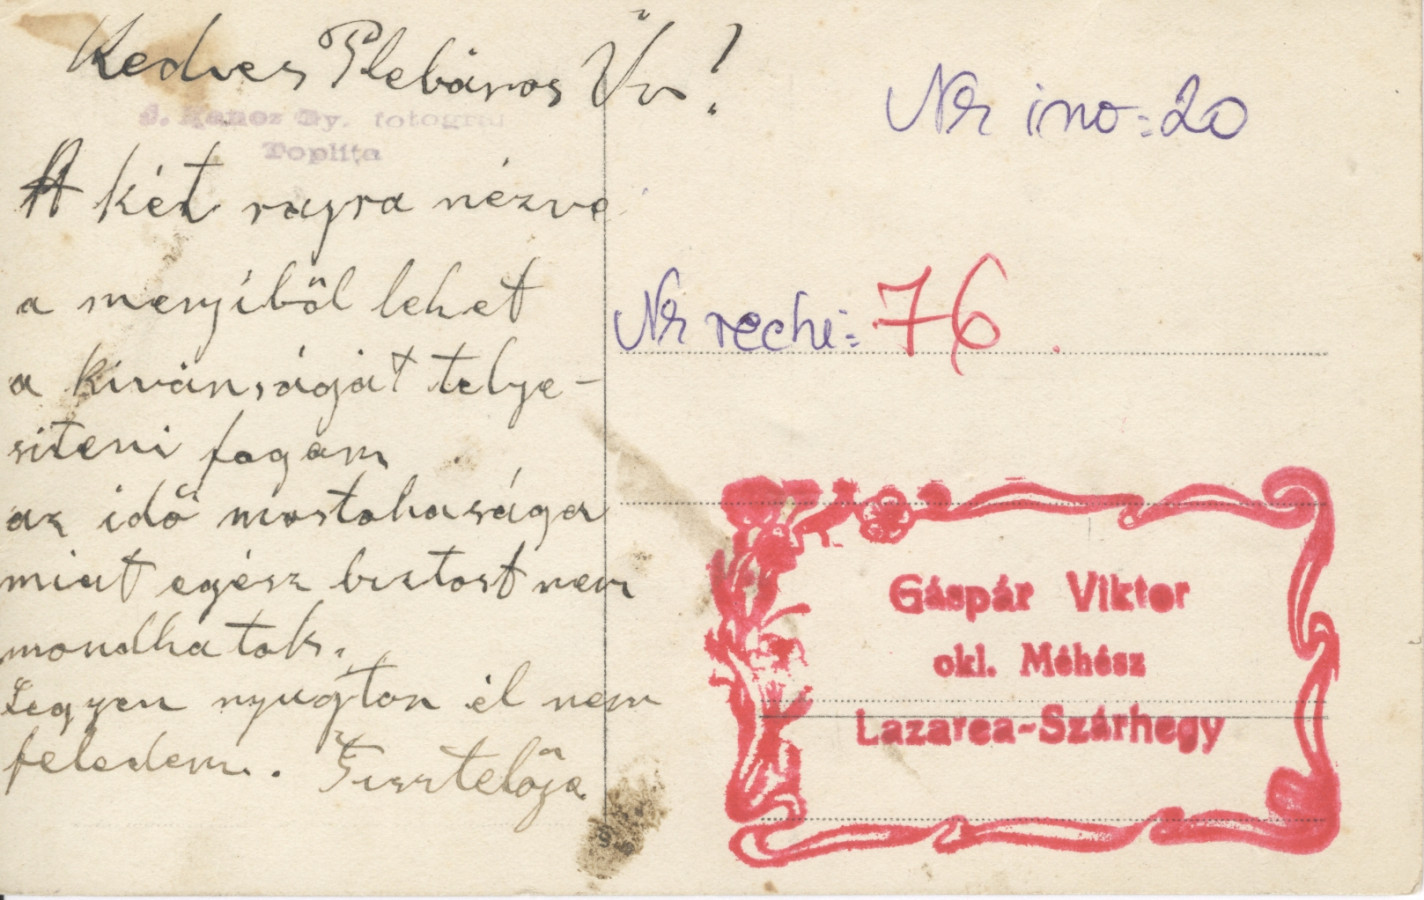 Kedves Plebános Úr!
fotograf
Toplita
A két rajra nézve
a menyíből lehet
a kívánságát telye-
síteni fogom
az idő mostohasága
miat egész biztost nem
mondhatok.
Legyen nyugton el nem
feledem. Tisztelője
Nr ino=20
Nr rechi= 76.
Gáspár Viktor
okl. Méhész
Lazarea-Szárhegy